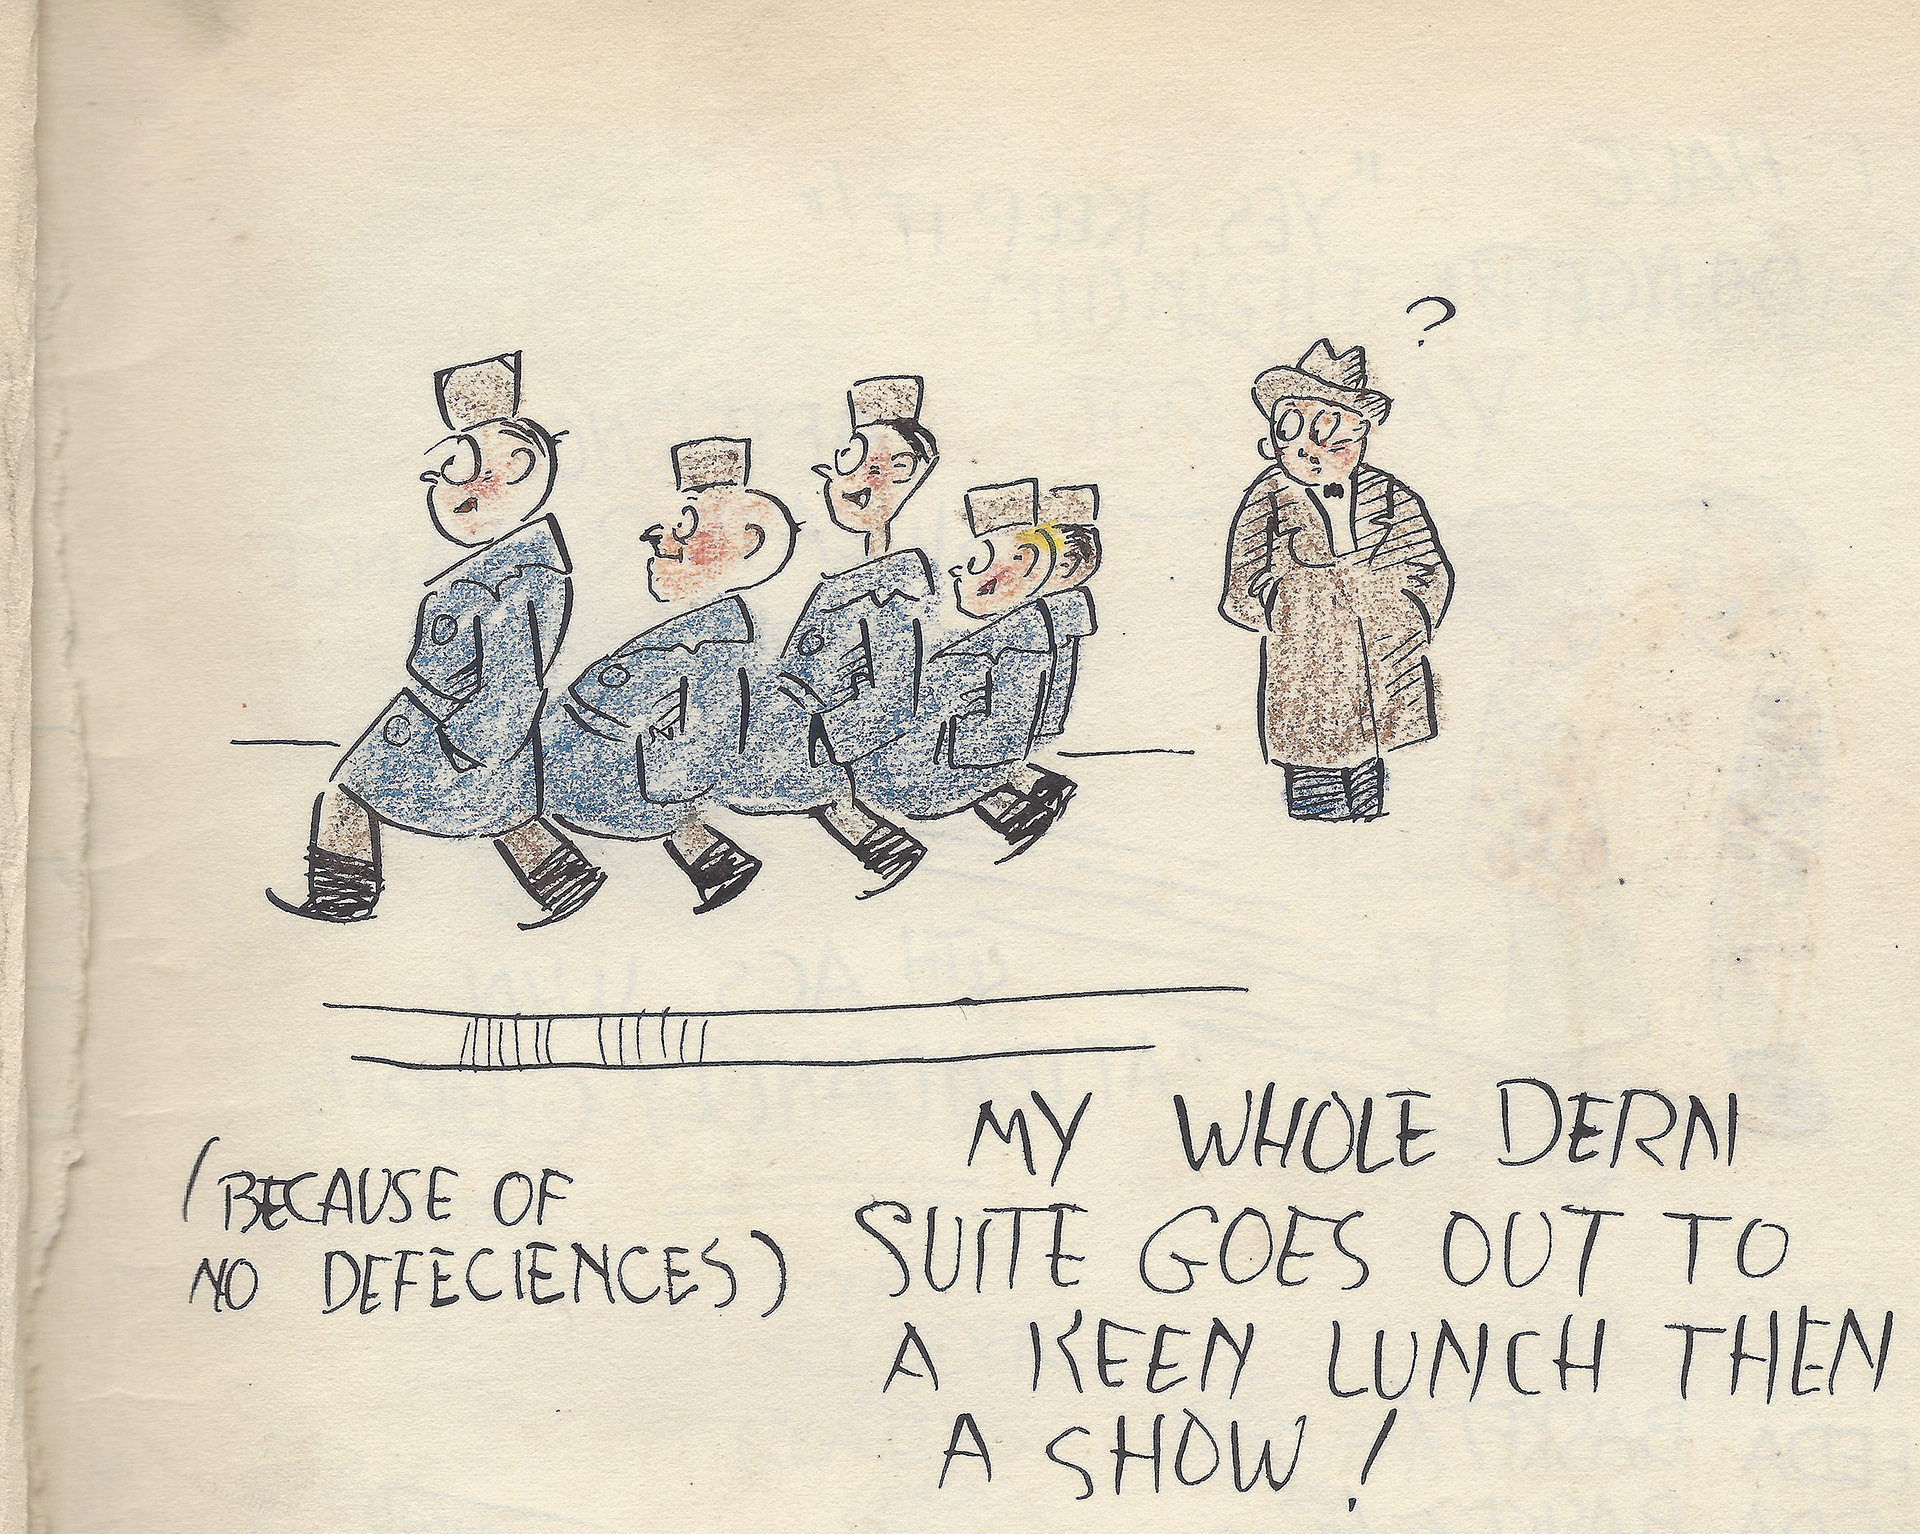 ?
MY WHOLE DERN
(BECAUSE OF
NO DEFECIENCES)
SUITE GOES OUT TO
A KEEN LUNCH THEN
A SHOW!
"YES, KEEP IT!"